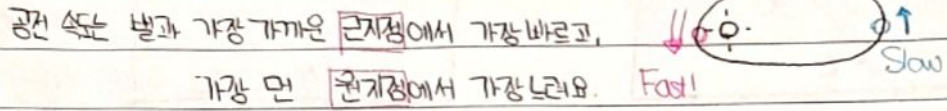 공전 속도는 별과 가장 가까운 근지점에서 가장 빠르고,
가장 먼 원지점에서 가장 느려요.
Fast!
Slow